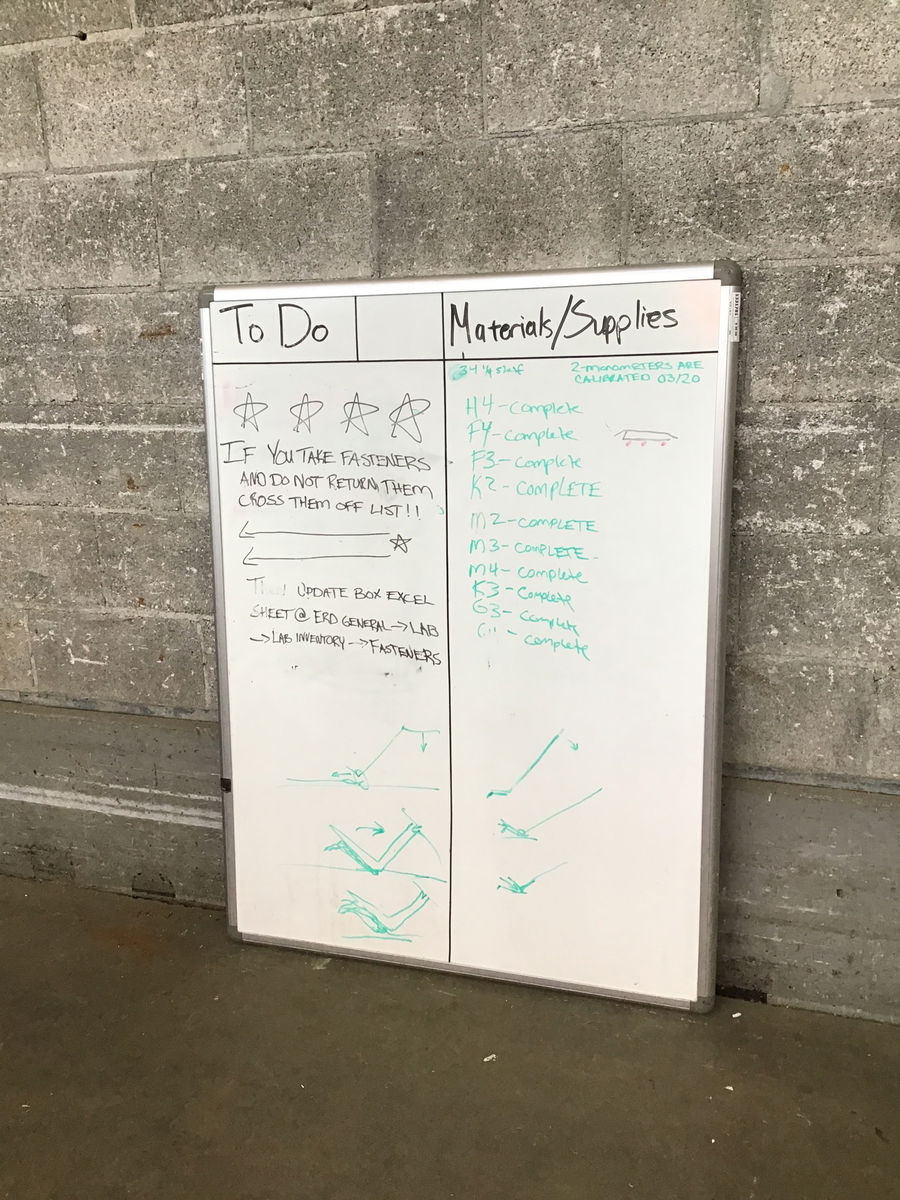 To Do
Materials/Supplies
2-MANOMETERS ARE
CALIBRATED 03/20
IF YOU TAKE FASTENERS
AND DO NOT RETURN THEM
CROSS THEM OFF LIST!!
UPDATE BOX EXCEL
SHEET @ ERD GENERAL→LAB
→LAB INVENTORY→FASTENERS
H4-complete
F4-complete
F3-complete
K2-COMPLETE
M2-COMPLETE
M3-COMPLETE
M4-complete
K3-complete
G3-complete
complete